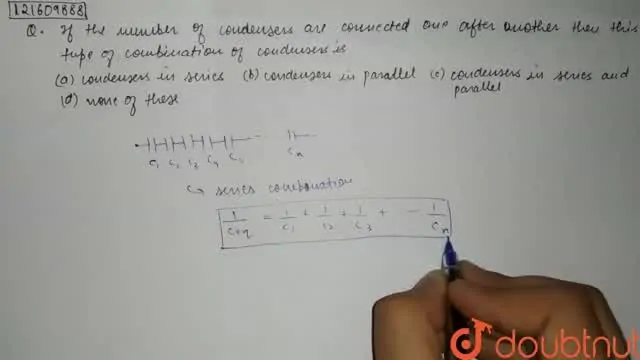 121609888
Q. If the number of condensers are connected one after another then this
type of combination of condensers is
(a) condensers in series (b) condensers in parallel (c) condensers in series and
parallel
(d) none of these
C1 C2 C3 C4 C5 -- Cn
↳ series combination
1/Ceq = 1/C1 + 1/C2 + 1/C3 + - 1/Cn
doubtnut